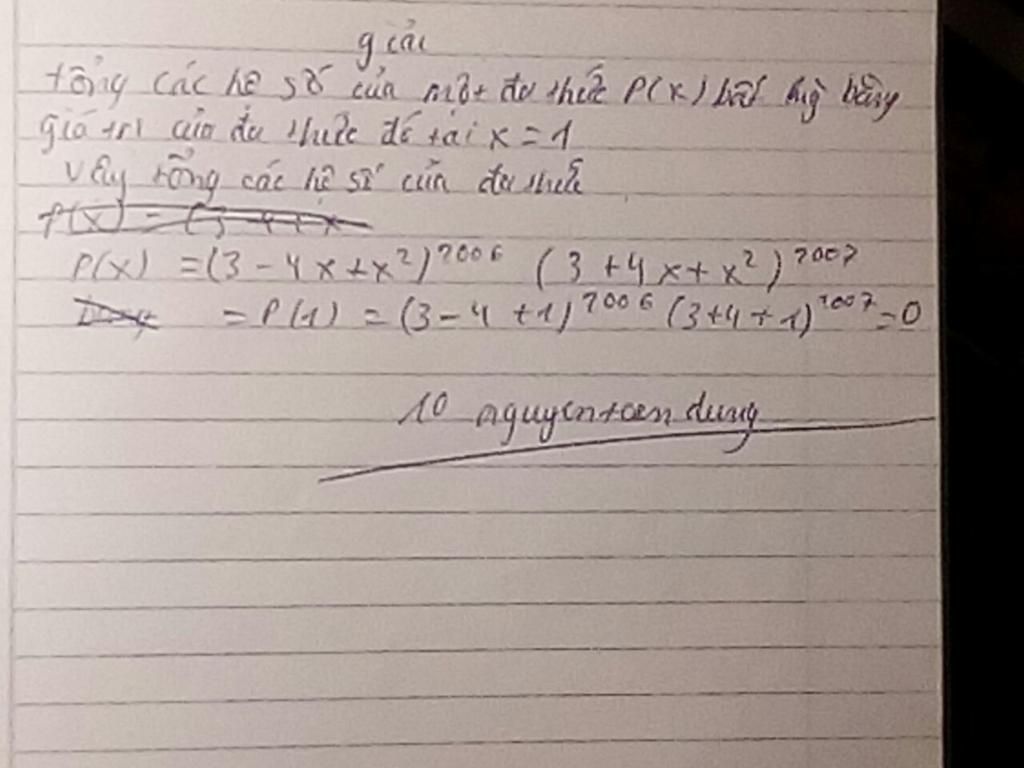 giải
tổng các hệ số của một đa thức P(x) bất kỳ bằng
giá trị của đa thức đó tại x = 1
Vậy tổng các hệ số của đa thức
P(x) = (3 - 4x + x²)²⁰⁰⁶ (3 + 4x + x²)²⁰⁰⁷
= P(1) = (3 - 4 + 1)²⁰⁰⁶ (3 + 4 + 1)²⁰⁰⁷ = 0